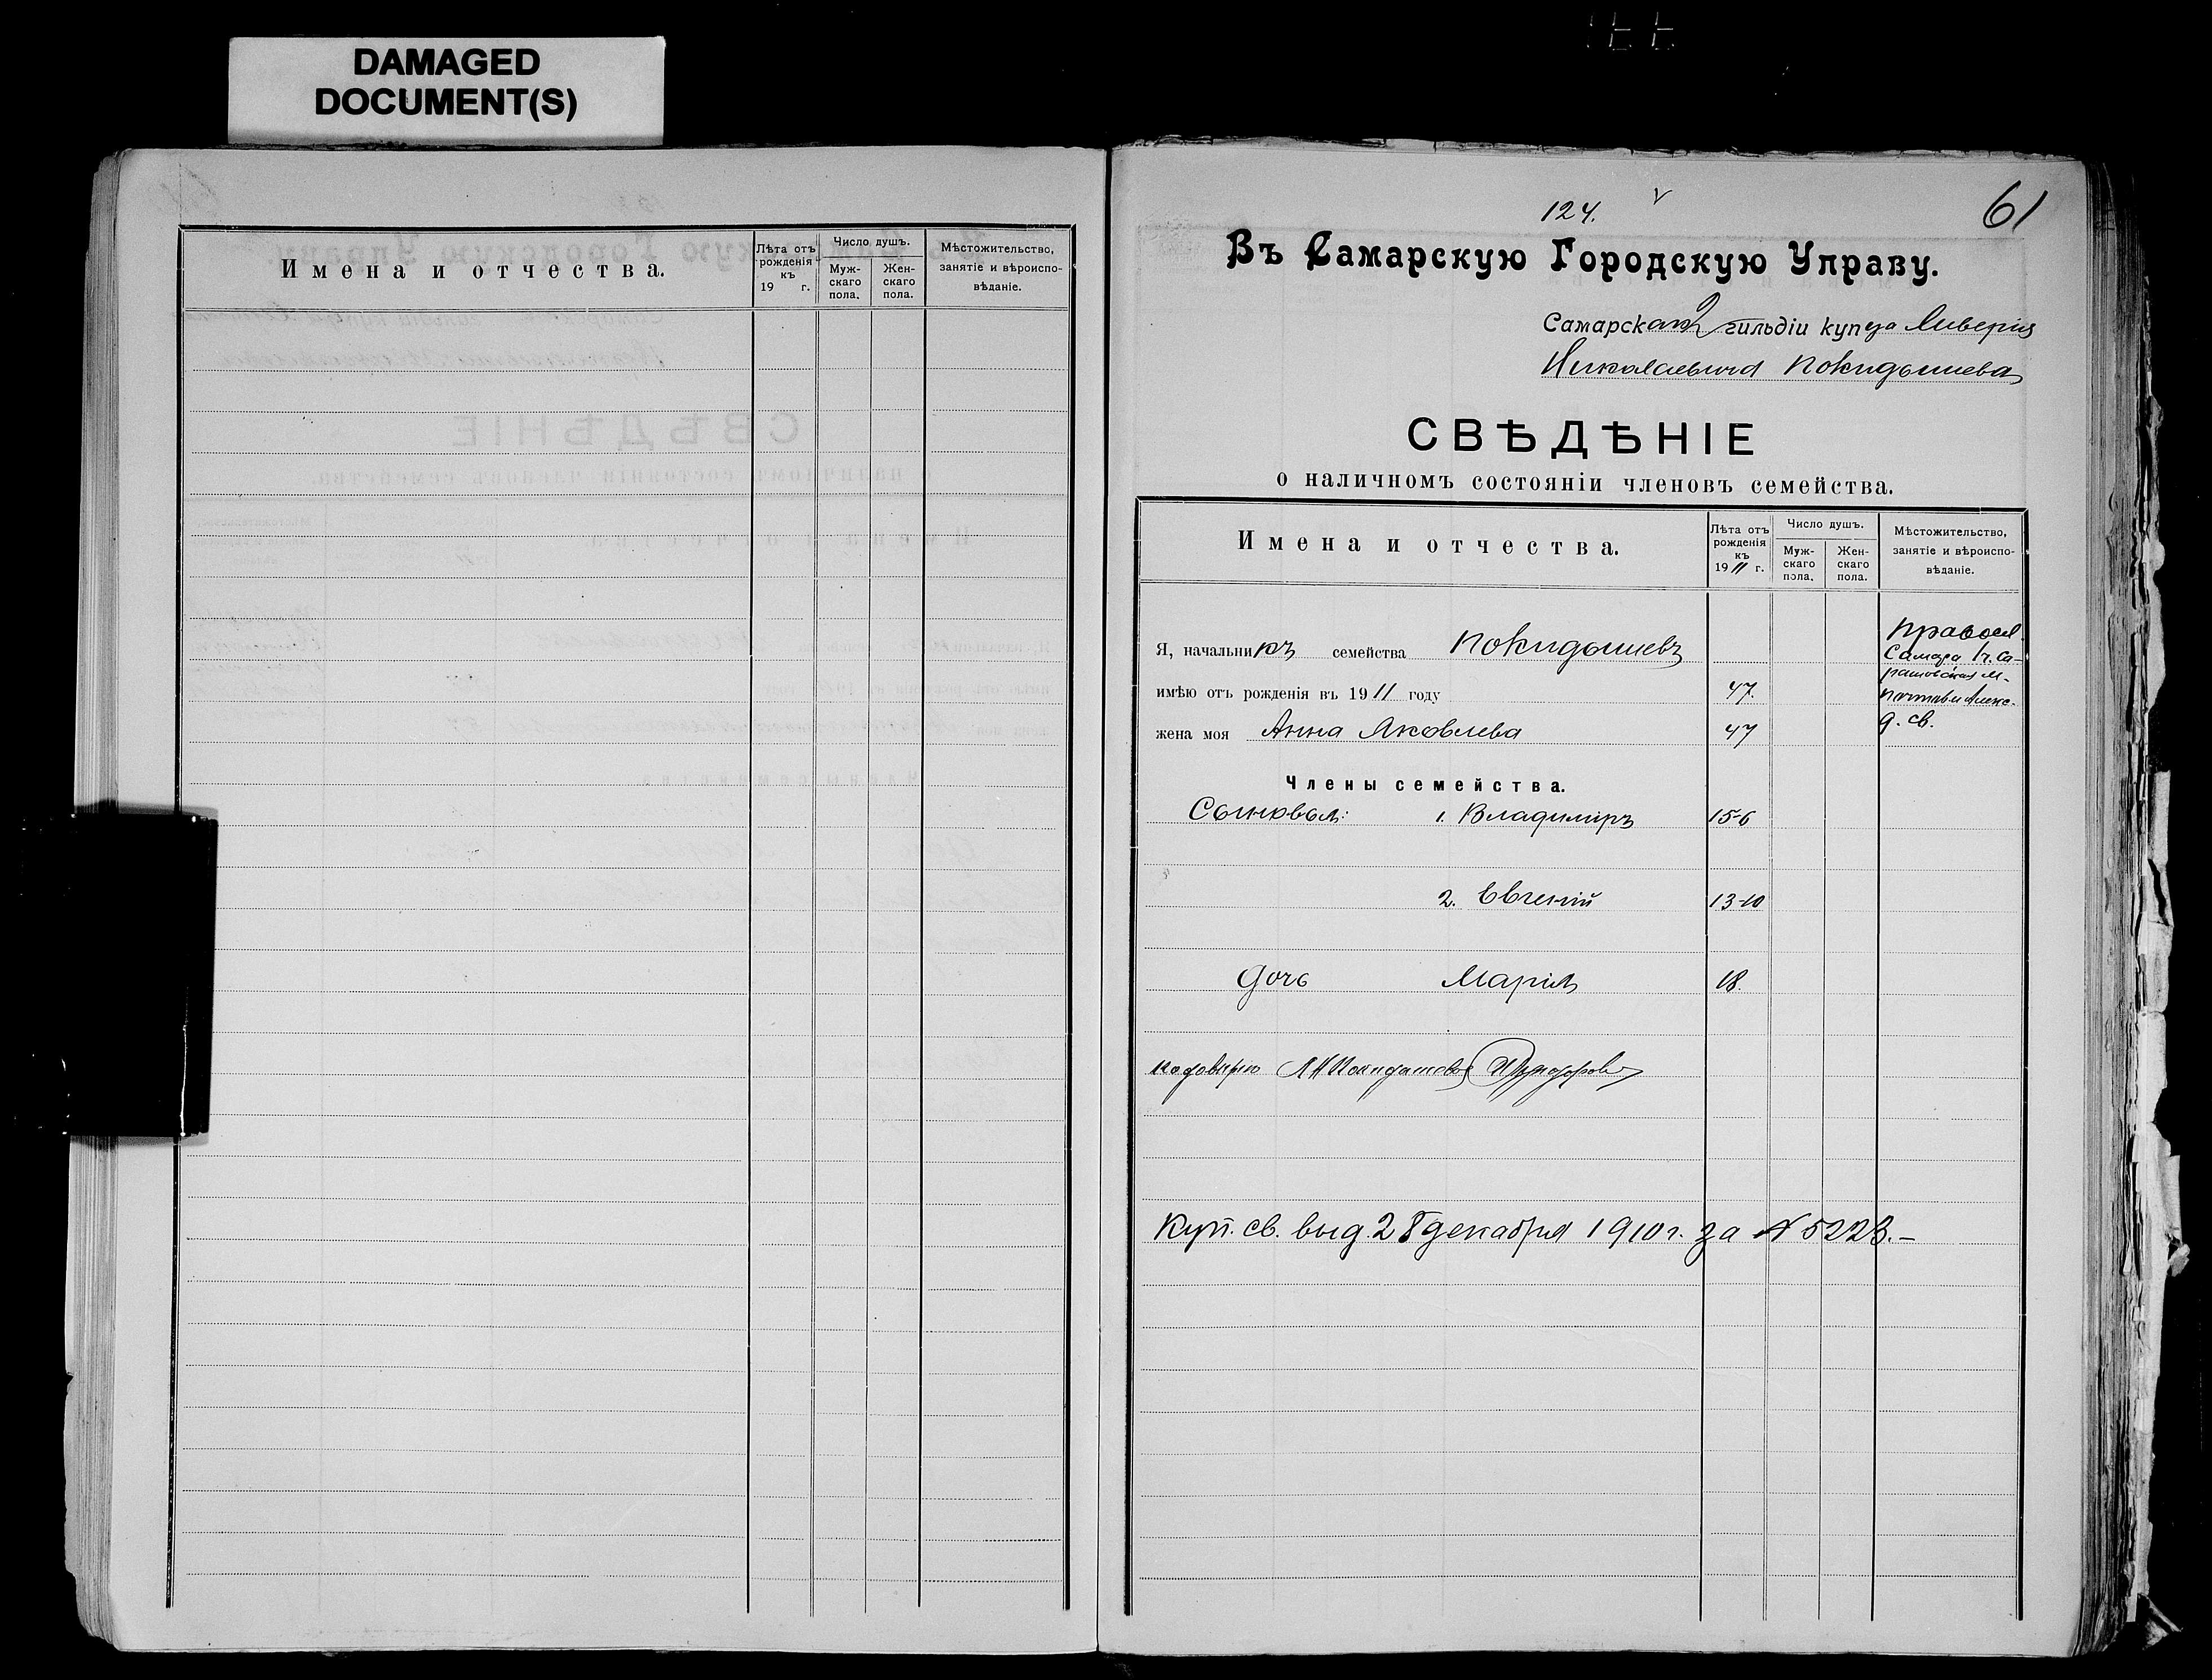 DAMAGED
DOCUMENT(S)
Имена и отчества.
Лѣта отъ рожденія къ 19 г.
Число душъ.
Мужскаго пола.
Женскаго пола.
Мѣстожительство, занятіе и вѣроисповѣданіе.
124.
61
Въ Самарскую Городскую Управу.
Самарскаго 2 гильдіи купца Ливерія
Николаевича Покидышева
СВѢДѢНІЕ
о наличномъ состояніи членовъ семейства.
Имена и отчества.
Лѣта отъ рожденія къ 1911 г.
Число душъ.
Мужскаго пола.
Женскаго пола.
Мѣстожительство, занятіе и вѣроисповѣданіе.
Я, начальникъ семейства Покидышевъ
Правосл.
Самара
имѣю отъ рожденія въ 1911 году 47.
д. св.
жена моя Анна Яковлева 47
Члены семейства.
Сыновья: 1. Владиміръ 15-6
2. Евгеній 13-10
Дочь Марія 18.
по довѣрію Л Н Покидышева
Куп. св. выд. 28 декабря 1910 г. за № 5223.—